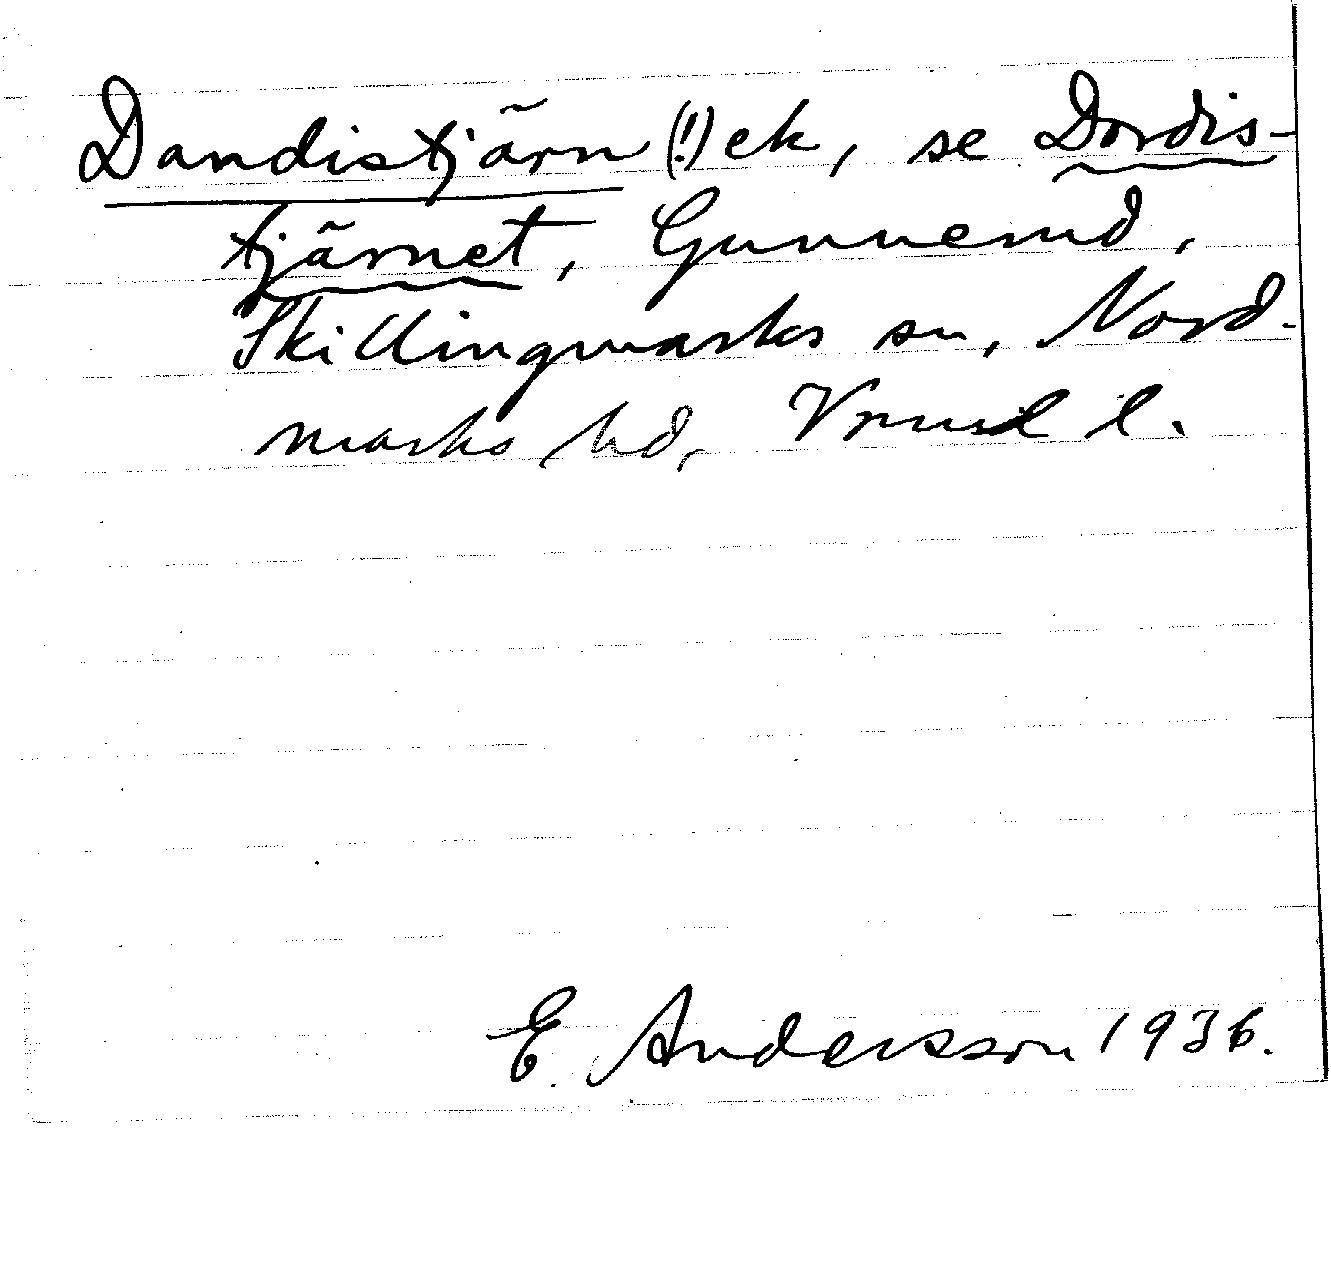 Dandistjärn (!) ek, se Dordis-
tjärnet, Gunnerud,
Skillingmarks sn, Nord-
marks hd, Vrml l.
E. Andersson 1936.